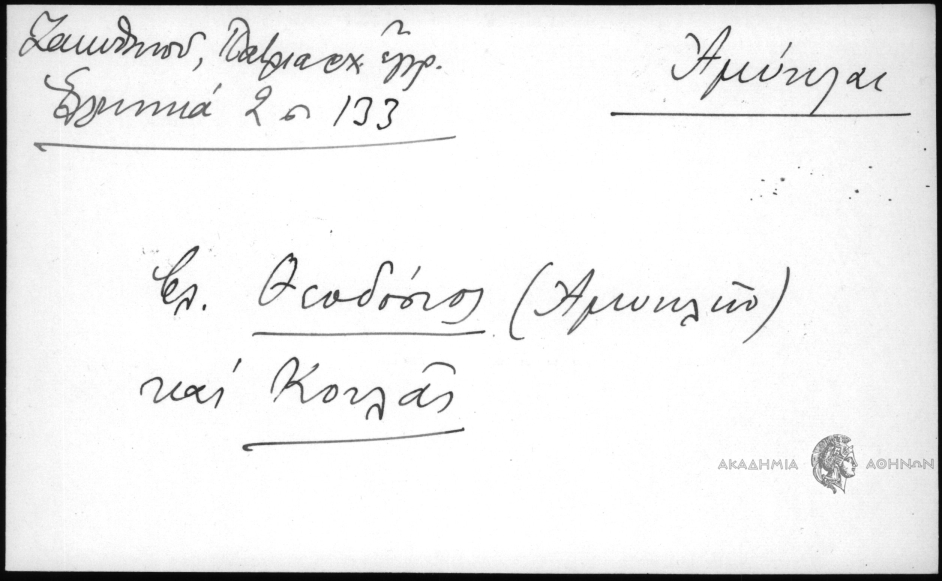 Ζακυθηνού, Πατριαρχ ἔγγρ.
Ἑλληνικά 2 σ 133
Ἀμύκλαι
βλ. Θεοδόσιος (Ἀμυκλῶν)
καί Κοιλᾶς
ΑΚΑΔΗΜΙΑ ΑΘΗΝΩΝ